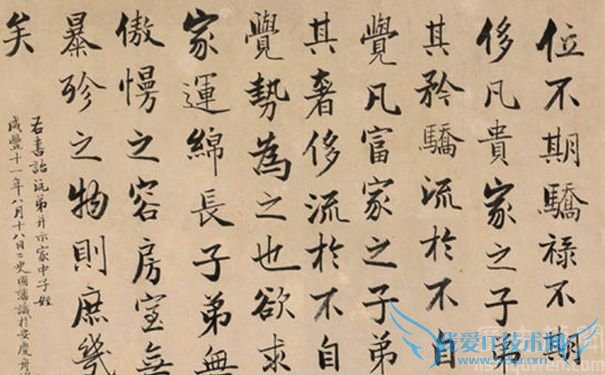 位不期驕祿不期
侈凡貴家之子弟
其矜驕流於不自
覺凡富家之子弟
其奢侈流於不自
覺勢為之也欲求
家運綿長子弟無
傲慢之容房室無
暴殄之物則庶幾
矣
右書詒沅弟并示家中子姪
咸豐十一年八月十八日二史國藩識於安慶
我爱IT技术网